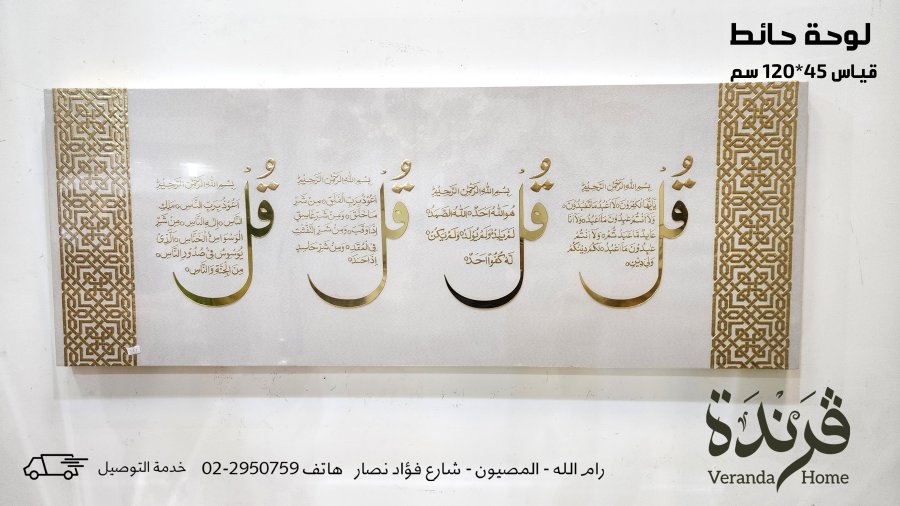 لوحة حائط
قياس 45*120 سم
قل
بسم الله الرحمن الرحيم
يأيها الكفرون لا أعبد ما تعبدون
ولا أنتم عبدون ما أعبد ولا أنا
عابد ما عبدتم ولا أنتم
عبدون ما أعبد لكم دينكم
ولي دين
قل
بسم الله الرحمن الرحيم
هو الله أحد الله الصمد
لم يلد ولم يولد ولم يكن
له كفوا أحد
قل
بسم الله الرحمن الرحيم
أعوذ برب الفلق من شر
ما خلق ومن شر غاسق
إذا وقب ومن شر النفثت
في العقد ومن شر حاسد
إذا حسد
قل
بسم الله الرحمن الرحيم
أعوذ برب الناس ملك
الناس إله الناس من شر
الوسواس الخناس الذي
يوسوس في صدور الناس
من الجنة والناس
ڤرندة
Veranda Home
رام الله - المصيون - شارع فؤاد نصار هاتف 02-2950759
خدمة التوصيل